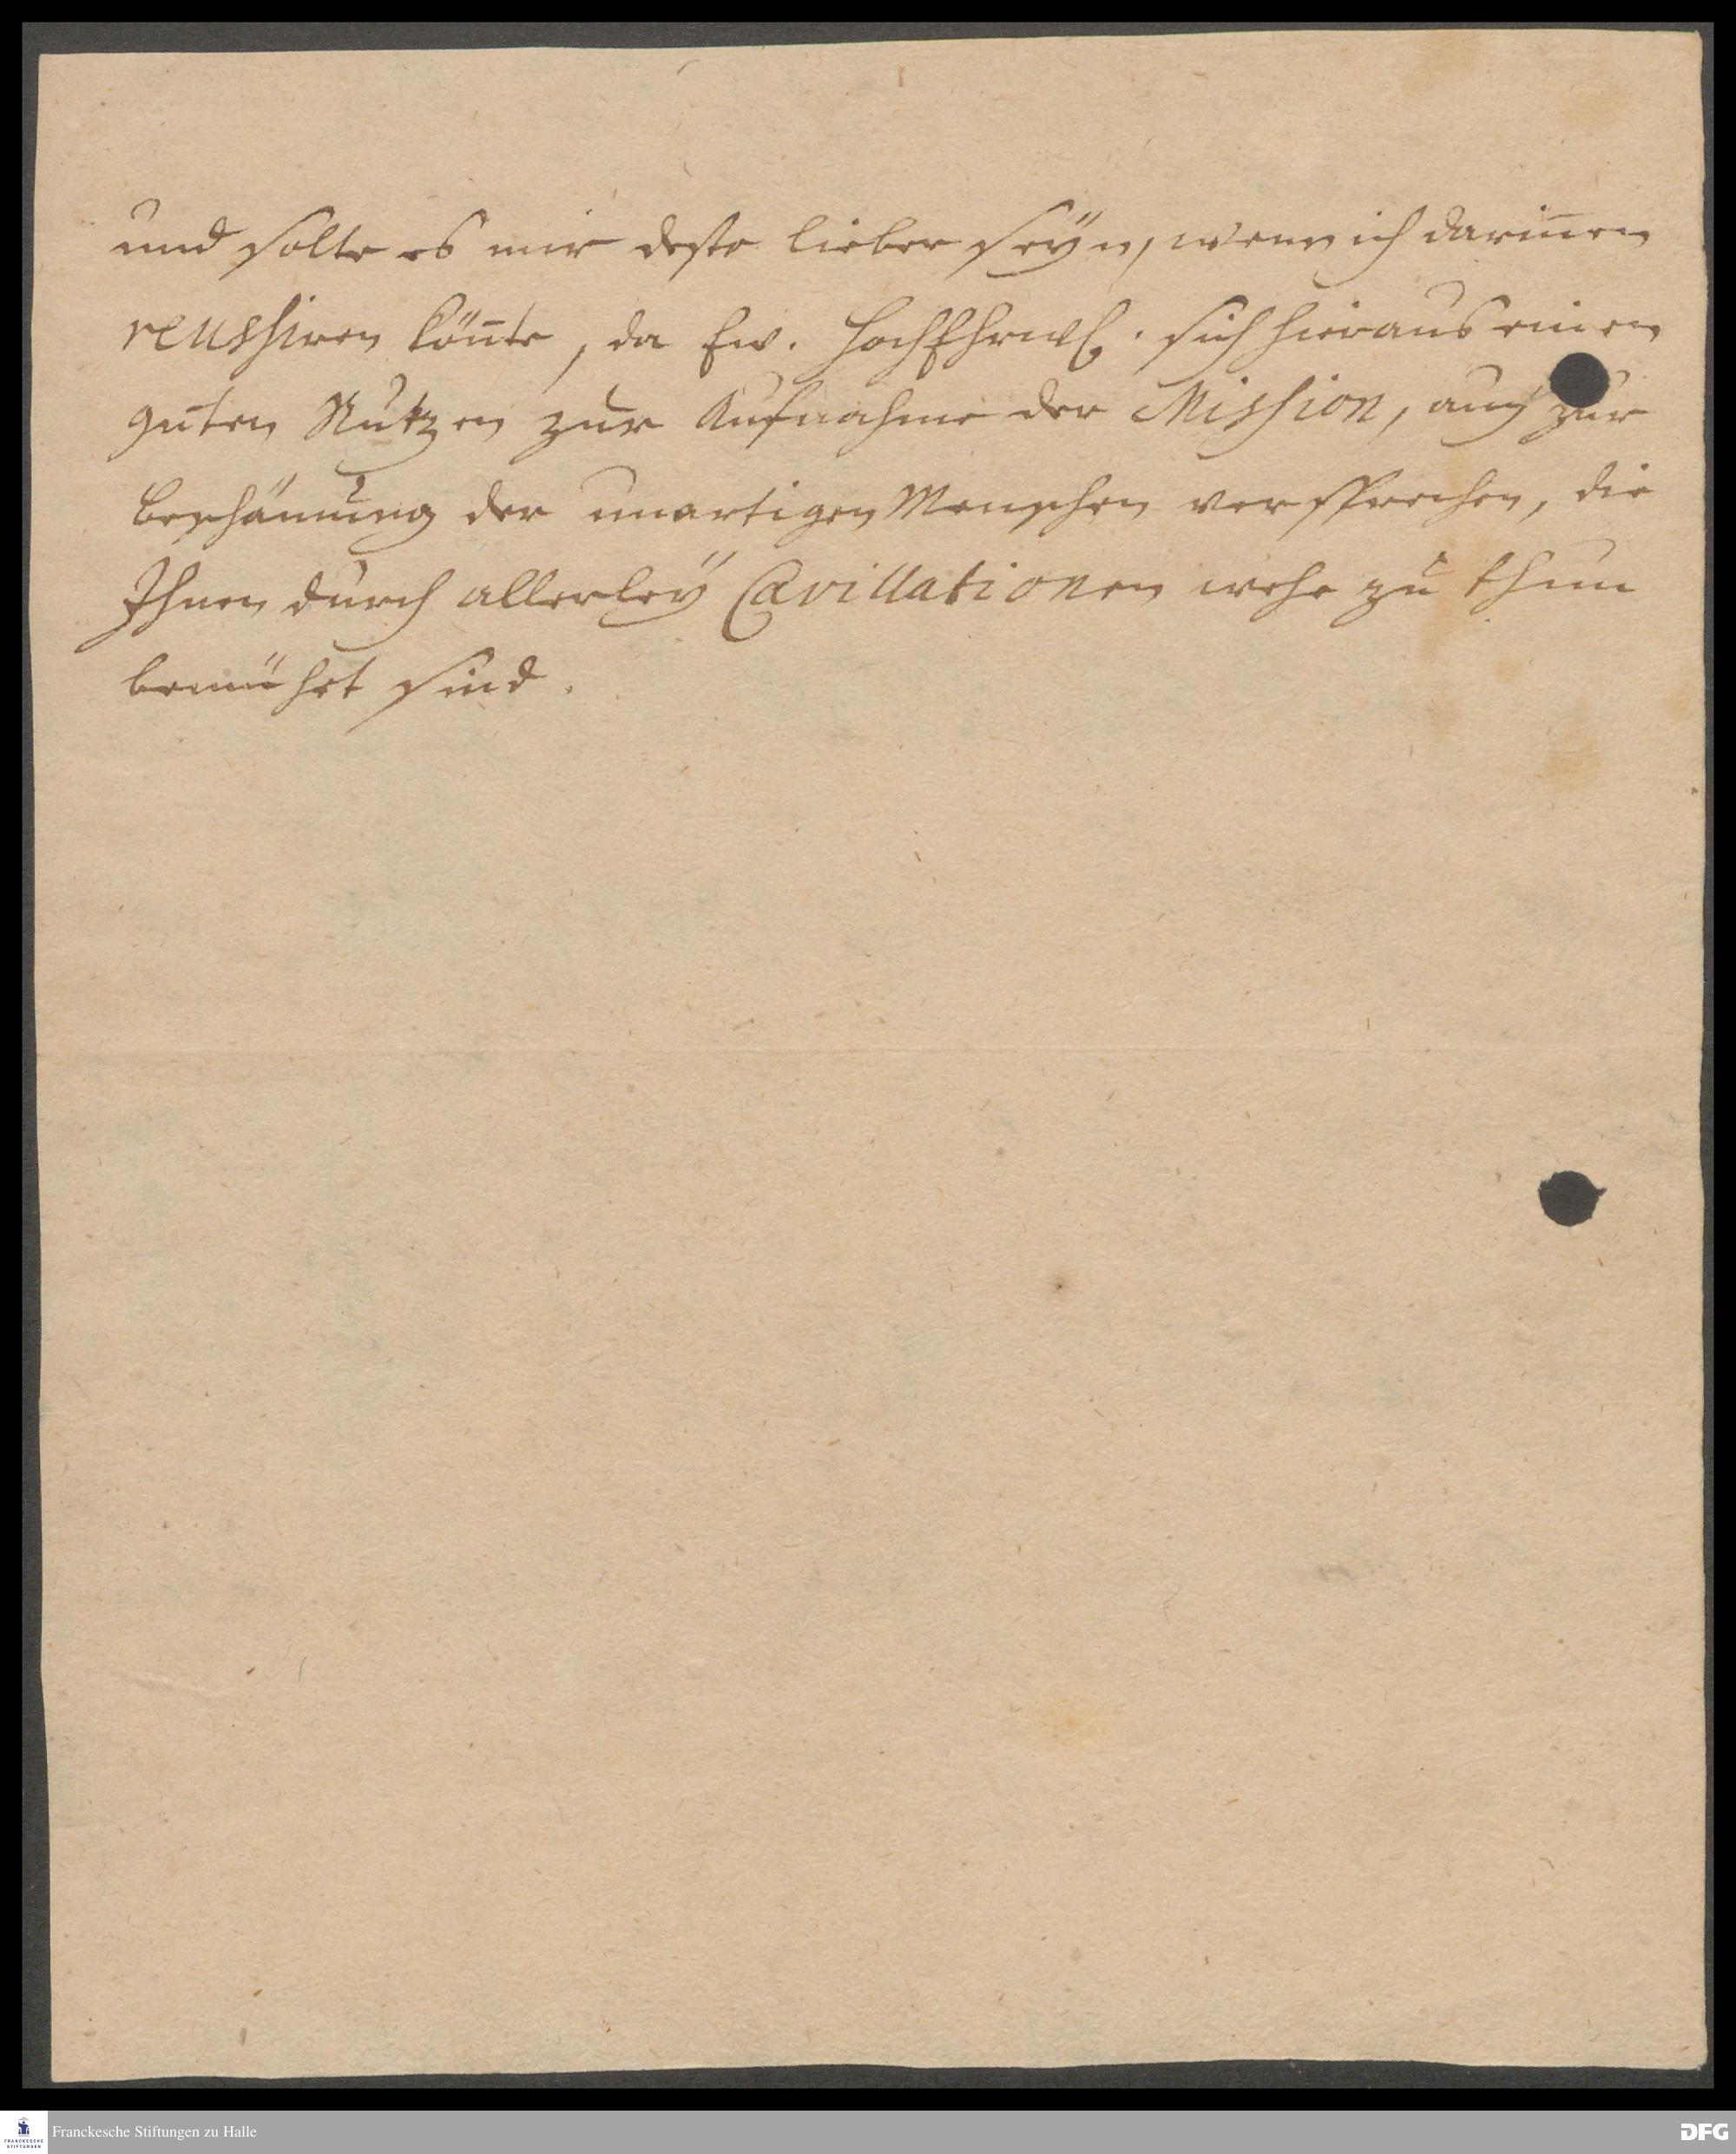 und solte es mir desto lieber seÿn, wenn ich dariñen
reussiren köñte, da Ew. HochEhrw. sich hieraus einen
guten Nutzen zur Aufnahme der Mission, auch zur
beschämung der unartigen Menschen versprechen, die
Ihnen durch allerleÿ Cavillationen wehe zu thun
bemühet sind.
FRANCKESCHE
STIFTUNGEN
Franckesche Stiftungen zu Halle
DFG